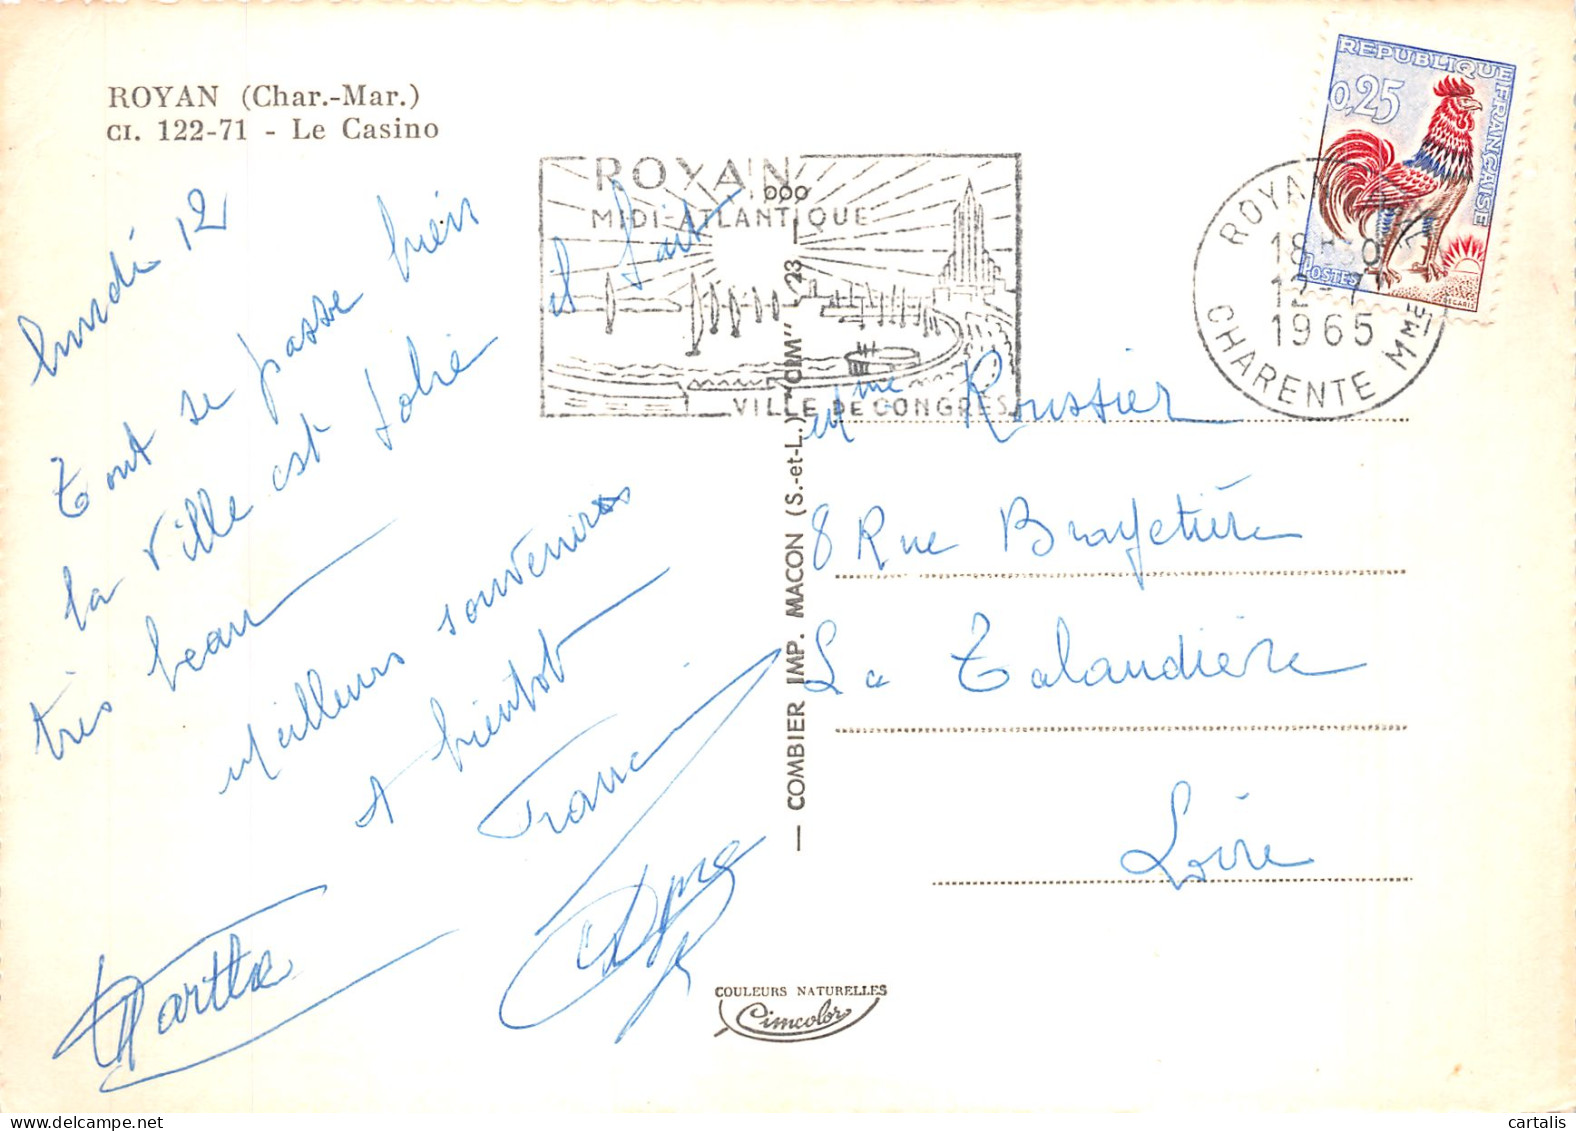 ROYAN (Char.-Mar.)
CI. 122-71 - Le Casino
lundi 12
Tout se passe bien
la ville est Jolie
et fait
très beau
Meilleurs souvenirs
A bientot
Marthe
ROYAN
MIDI-ATLANTIQUE
VILLE DE CONGRES
REPUBLIQUE FRANÇAISE
0,25
POSTES
DECARIS
ROYAN
18H30
12-7
1965
CHARENTE MME
Mme Roussier
8 Rue Brayetière
La Talaudière
Loire
— COMBIER IMP. MACON (S.-et-L.) "CIM" L/23
COULEURS NATURELLES
Cimcolor
cartalis